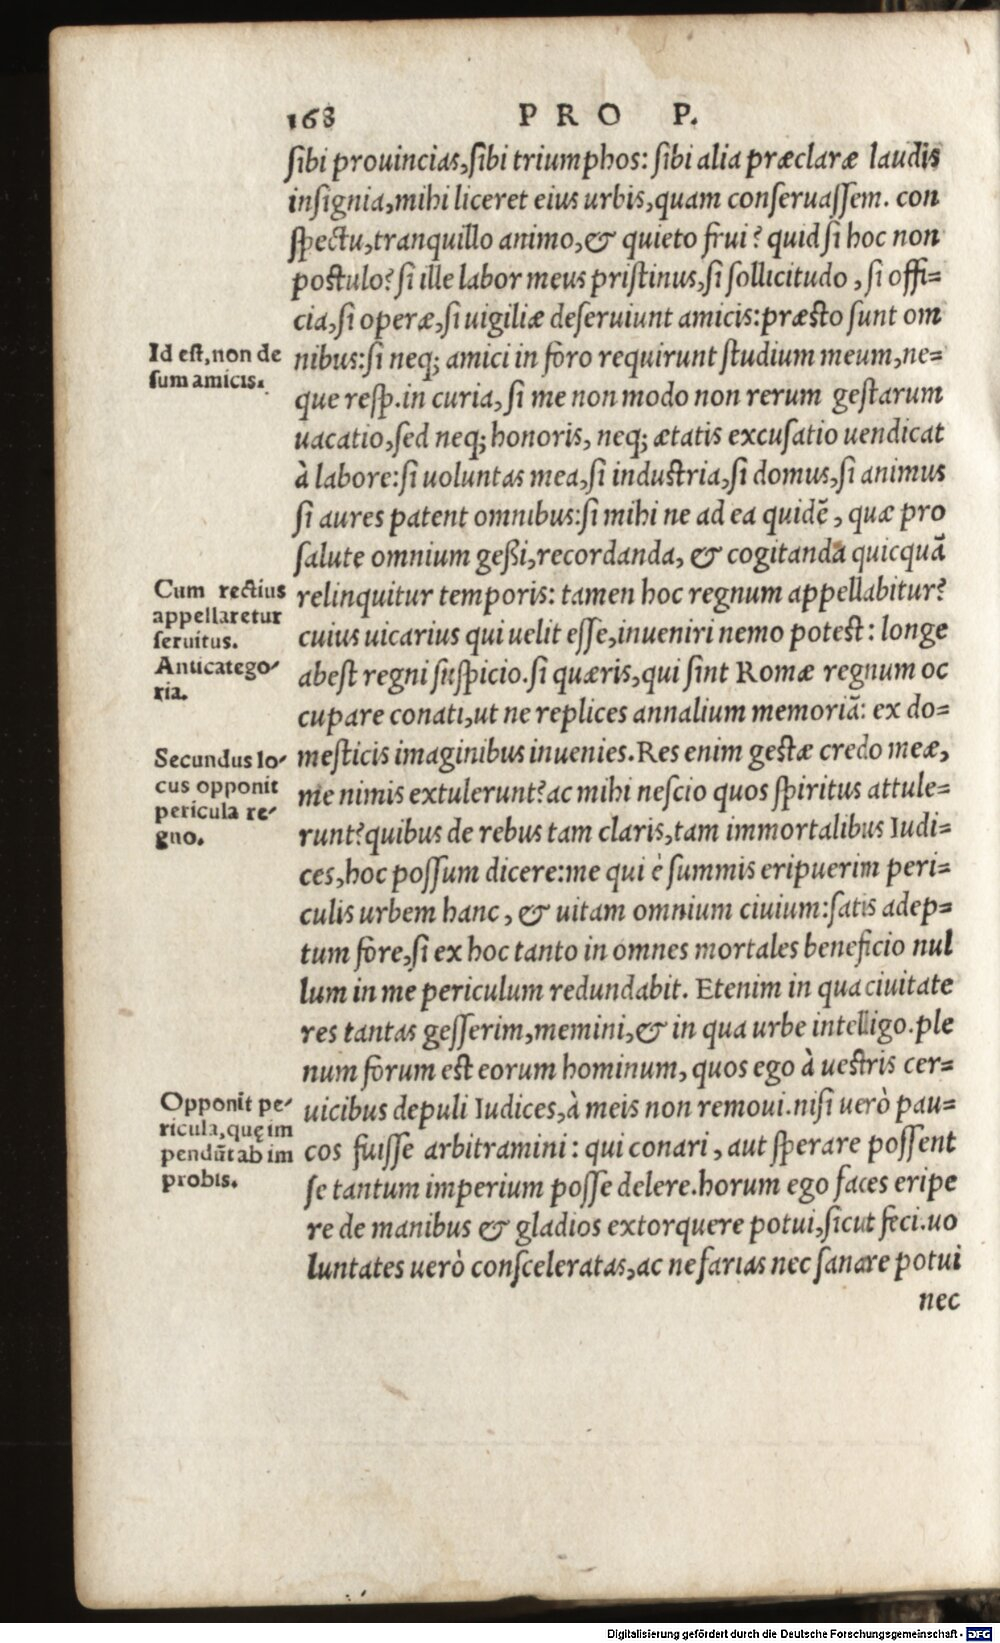 168 PRO P.
sibi prouincias,sibi triumphos: sibi alia præclaræ laudis
insignia,mihi liceret eius urbis,quam conseruassem. con
spectu,tranquillo animo,& quieto frui? quid si hoc non
postulo? si ille labor meus pristinus,si sollicitudo , si offi=
cia,si operæ,si uigiliæ deseruiunt amicis:præsto sunt om
Id est,non de
sum amicis.
nibus:si neq; amici in foro requirunt studium meum,ne=
que resp.in curia, si me non modo non rerum gestarum
uacatio,sed neq; honoris, neq; ætatis excusatio uendicat
à labore:si uoluntas mea,si industria,si domus,si animus
si aures patent omnibus:si mihi ne ad ea quidē , quæ pro
salute omnium geßi,recordanda, & cogitanda quicquā
Cum rectius
appellaretur
seruitus.
Anticatego-
ria.
relinquitur temporis: tamen hoc regnum appellabitur?
cuius uicarius qui uelit esse,inueniri nemo potest: longe
abest regni suspicio.si quæris,qui sint Romæ regnum oc
cupare conati,ut ne replices annalium memoriā: ex do=
Secundus lo-
cus opponit
pericula re-
gno.
mesticis imaginibus inuenies.Res enim gestæ credo meæ,
me nimis extulerunt?ac mihi nescio quos spiritus attule=
runt?quibus de rebus tam claris,tam immortalibus Iudi=
ces,hoc possum dicere:me qui è summis eripuerim peri=
culis urbem hanc, & uitam omnium ciuium:satis adep=
tum fore,si ex hoc tanto in omnes mortales beneficio nul
lum in me periculum redundabit. Etenim in qua ciuitate
res tantas gesserim,memini,& in qua urbe intelligo.ple
num forum est eorum hominum, quos ego à uestris cer=
Opponit pe-
ricula,quę im
pendāt ab im
probis.
uicibus depuli Iudices,à meis non remoui.nisi uerò pau=
cos fuisse arbitramini: qui conari, aut sperare possent
se tantum imperium posse delere.horum ego faces eripe
re de manibus & gladios extorquere potui,sicut feci.uo
luntates uerò consceleratas,ac nefarias nec sanare potui
nec
Digitalisierung gefördert durch die Deutsche Forschungsgemeinschaft - DFG